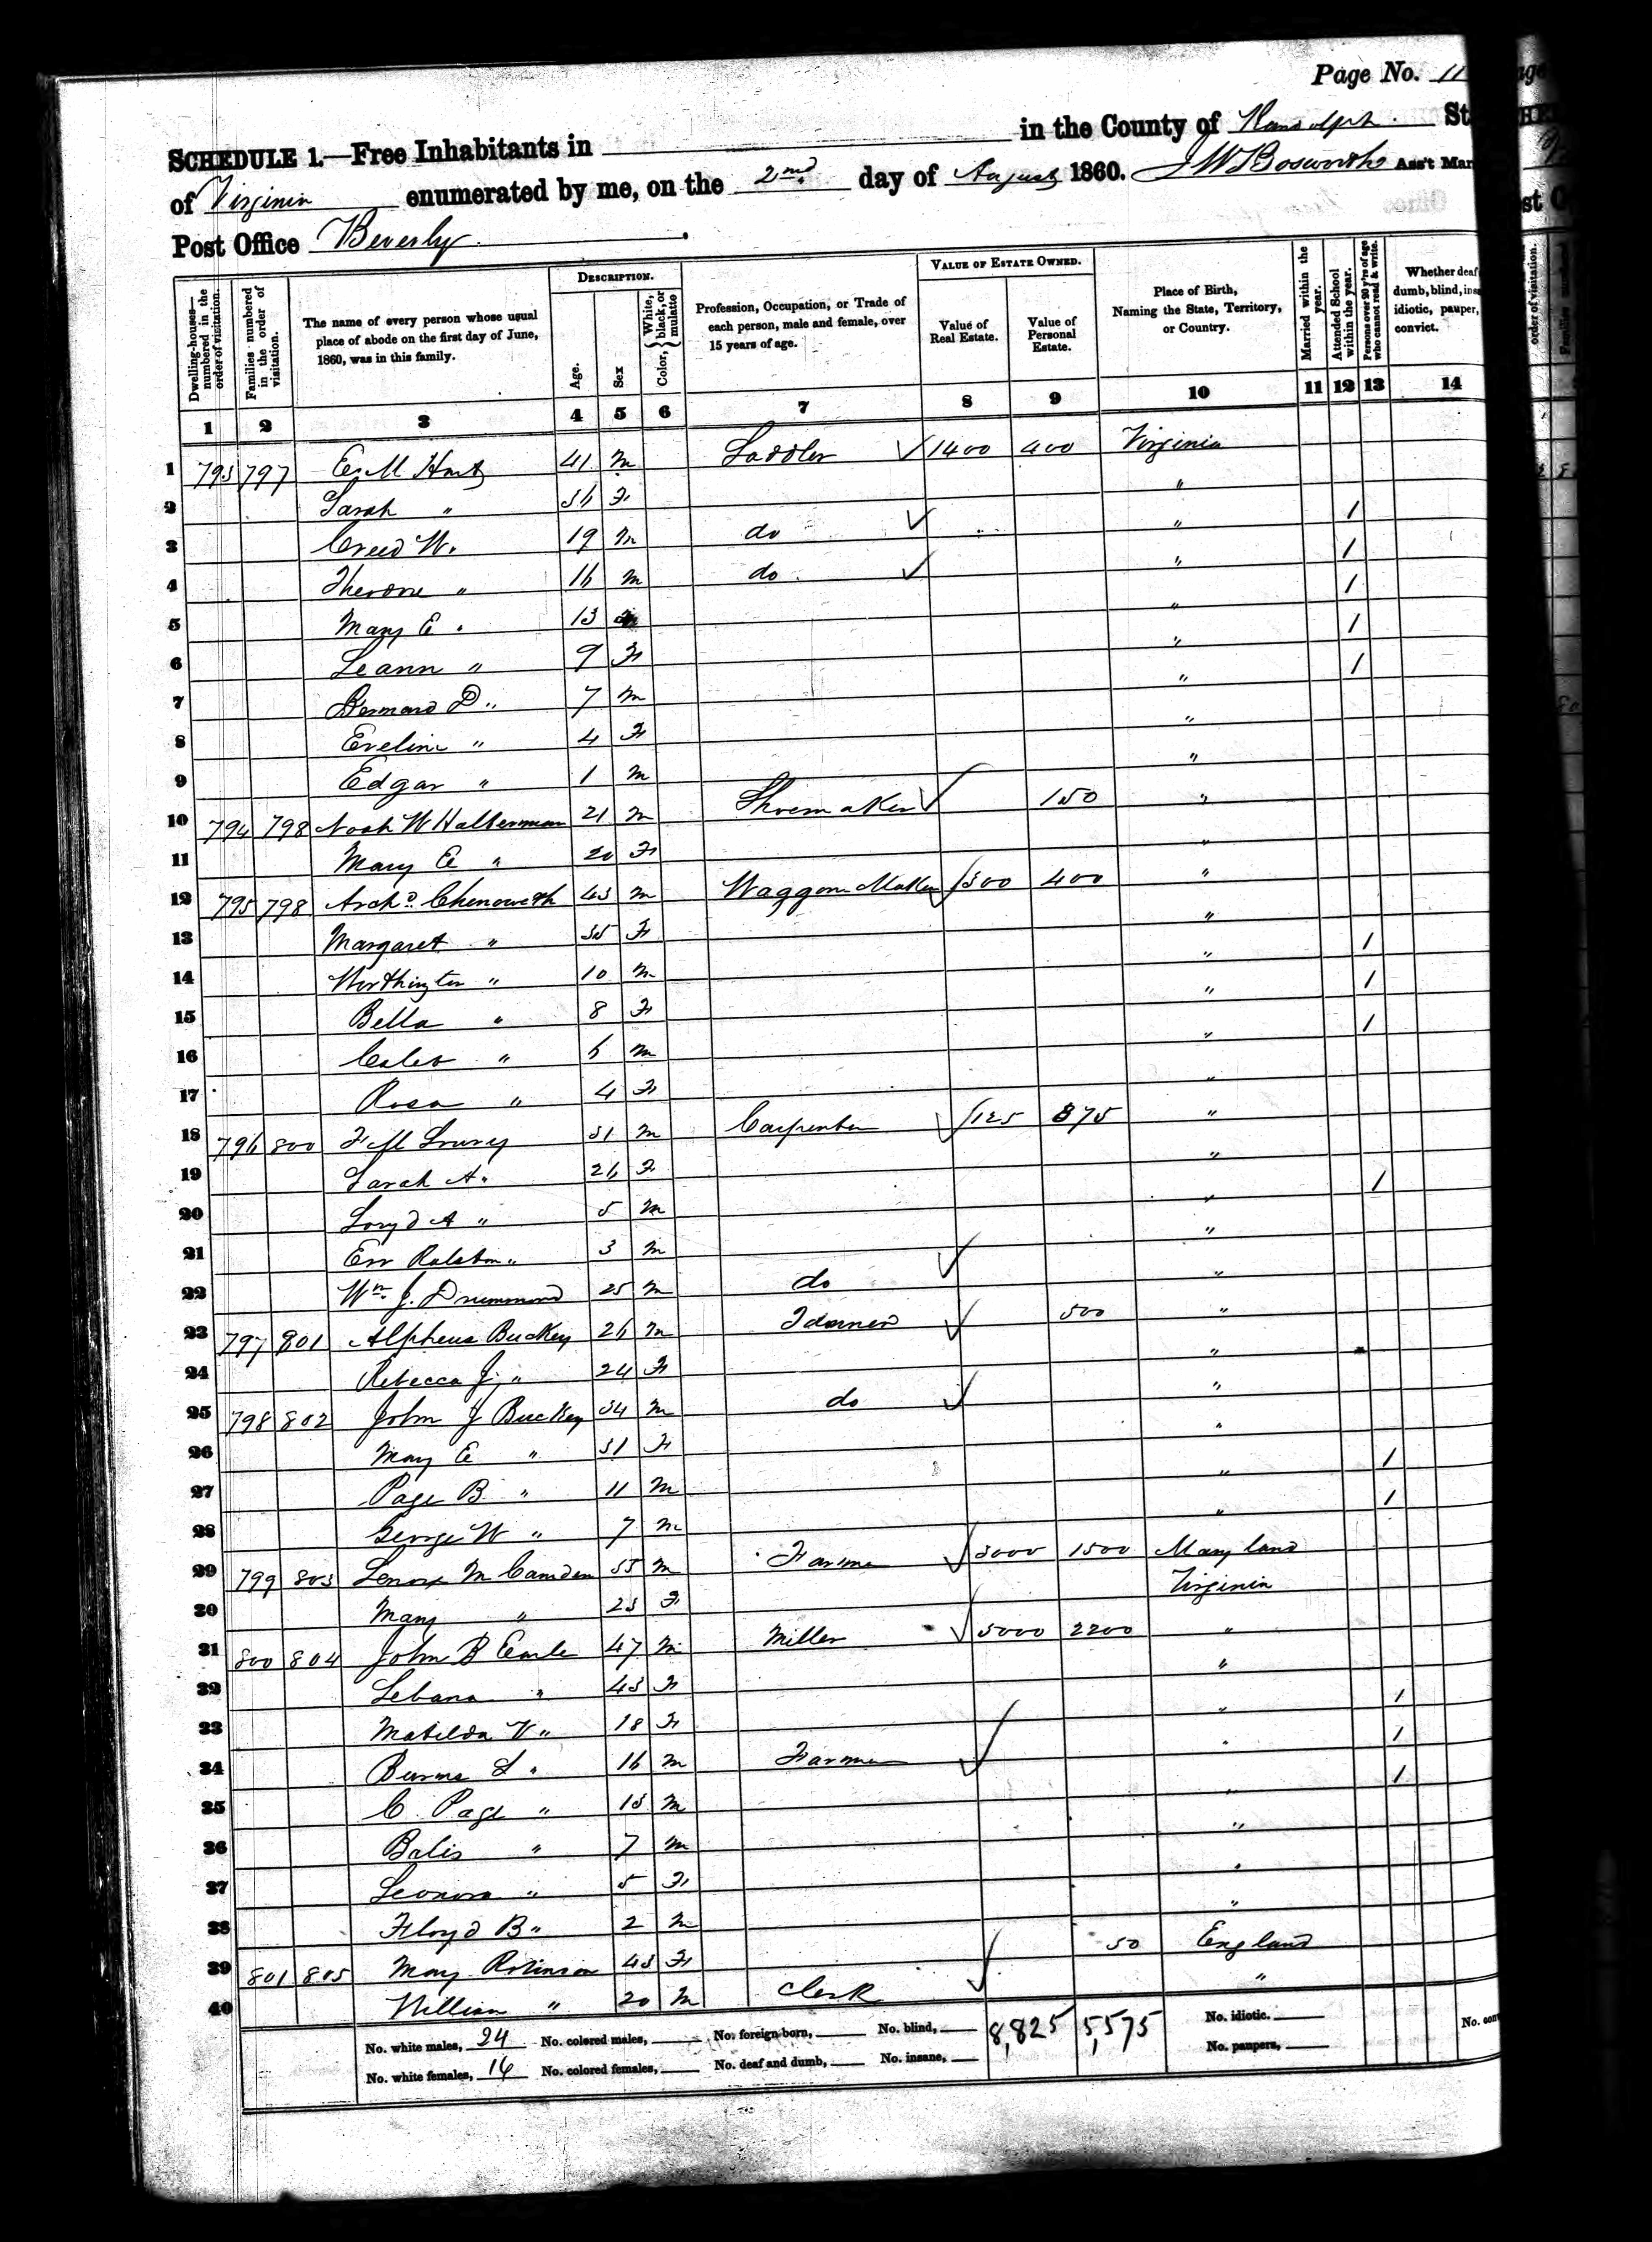 Page No. 11
SCHEDULE 1.—Free Inhabitants in in the County of Randolph St
of Virginia enumerated by me, on the 2nd day of August 1860. J W Bosworth Ass't Mar
Post Office Beverly
DESCRIPTION. VALUE OF ESTATE OWNED.
Dwelling-houses—numbered in the order of visitation. Families numbered in the order of visitation. The name of every person whose usual place of abode on the first day of June, 1860, was in this family. Age. Sex Color, { White, black, or mulatto Profession, Occupation, or Trade of each person, male and female, over 15 years of age. Value of Real Estate. Value of Personal Estate. Place of Birth, Naming the State, Territory, or Country. Married within the year. Attended School within the year. Persons over 20 y'rs of age who cannot read & write. Whether deaf dumb, blind, insa idiotic, pauper, convict.
1 2 3 4 5 6 7 8 9 10 11 12 13 14
1 793 797 E M Hart 41 m Saddler 1400 400 Virginia
2 Sarah " 36 F "
3 Creed W. 19 m do " 1
4 Therone " 16 m do " 1
5 Mary E " 13 " 1
6 Leann " 9 F " 1
7 Bernard D " 7 m " 1
8 Eveline " 4 F "
9 Edgar " 1 m "
10 794 798 Noah W Halterman 21 m Shoemaker 150 "
11 Mary E " 20 F "
12 795 798 Archd Chenoweth 43 m Waggon Maker 300 400 "
13 Margaret " 35 F "
14 Worthington " 10 m " 1
15 Bella " 8 F " 1
16 Caleb " 6 m " 1
17 Rosa " 4 F "
18 796 800 F M Lowry 31 m Carpenter 125 375 "
19 Sarah A " 26 F "
20 Loyd A " 5 m " 1
21 Err Ralston " 3 m "
22 Wm J. Drummond 25 m do "
23 797 801 Alpheus Buckey 26 m 500 "
24 Rebecca J " 24 F "
25 798 802 John J Buckey 34 m do "
26 Mary E " 31 F "
27 Page B " 11 m " 1
28 George W " 7 m " 1
29 799 803 Lenox M Camden 55 m Farmer 3000 1500 Maryland
30 Mary " 23 F Virginia
31 800 804 John B Earle 47 m Miller 2200 "
32 Lebana " 43 F "
33 Matilda V " 18 F " 1
34 16 m Farmer " 1
35 C. Page " 13 m " 1
36 Balis " 7 m "
37 Leonora " 5 F "
38 Floyd B " 2 m "
39 801 805 Mary Robinson 43 F 50 England
40 William " 20 m Clerk "
No. white males, 24 No. colored males, No. foreign born, No. blind, 8,825 5,575 No. idiotic. No. con
No. white females, 16 No. colored females, No. deaf and dumb, No. insane, No. paupers,